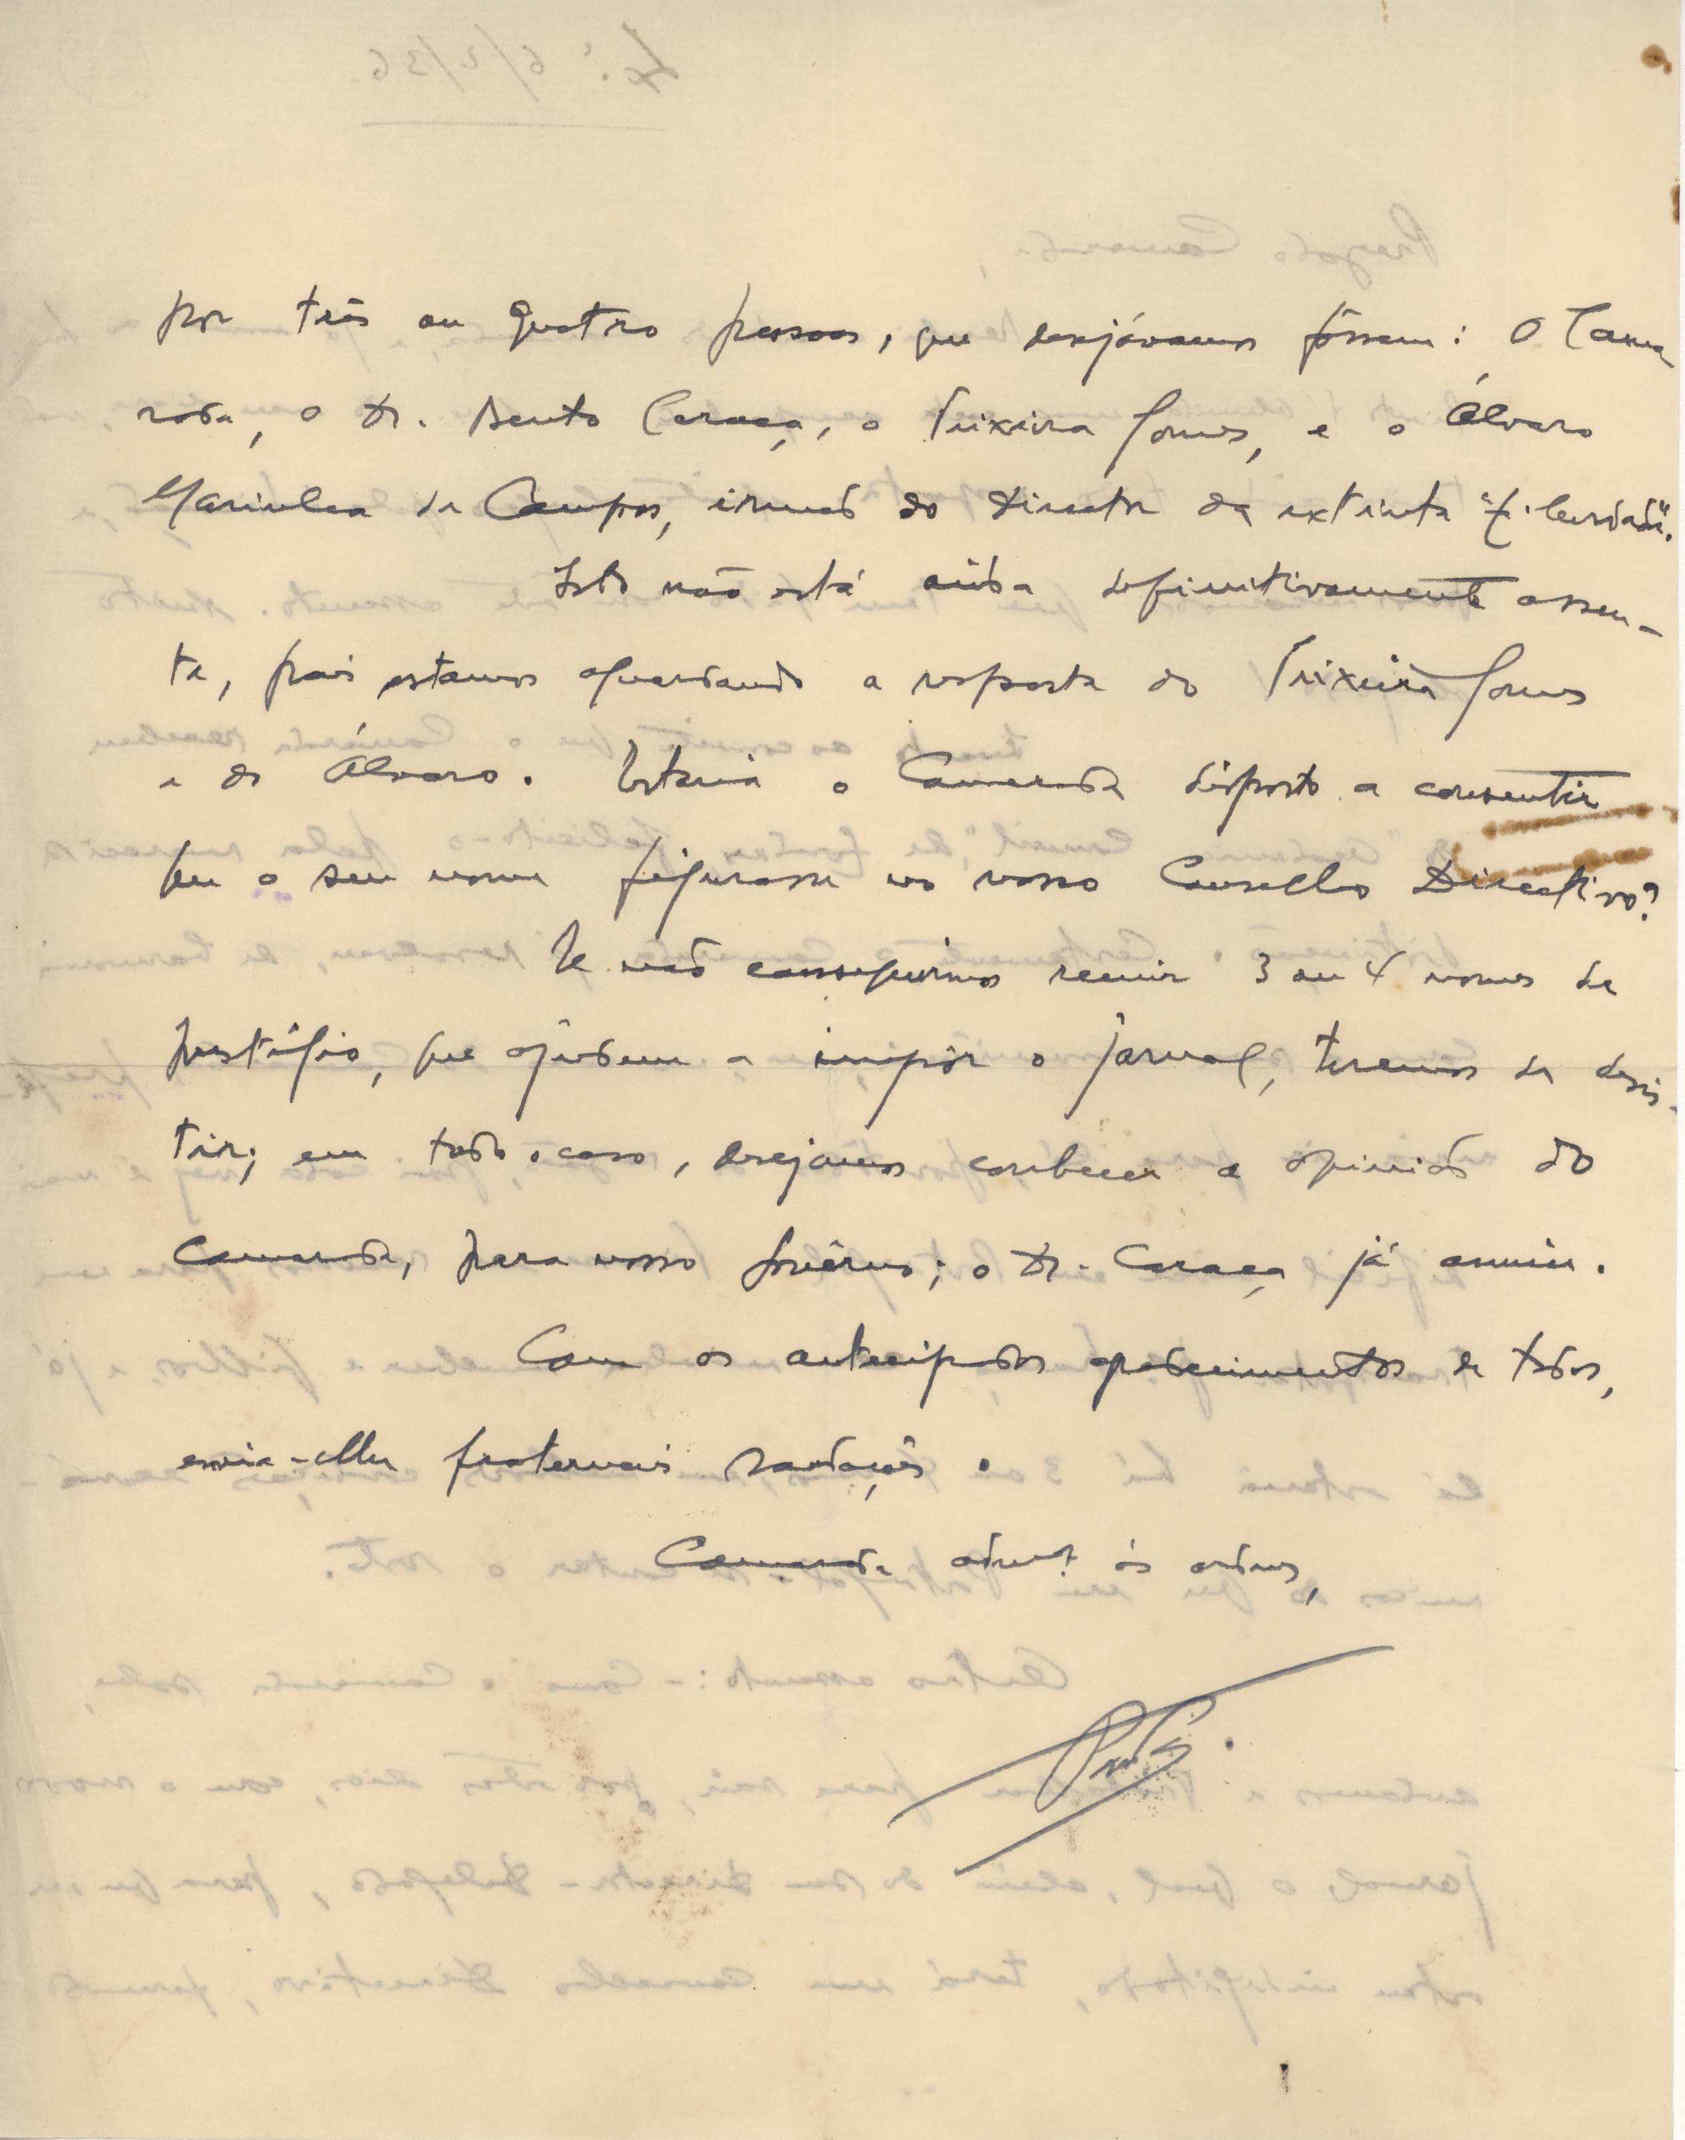 por três ou quatro pessoas, que desejávamos fôssem: O Cama
rada, o Dr. Bento Caraça, o Teixeira Gomes, e o Álvaro
Marinha de Campos, irmão do director da extinta "Liberdade".
Isto não está ainda definitivamente assen-
te, pois estamos aguardando a resposta do Teixeira Gomes
e do Álvaro. Estaria o Camarada disposto a consentir
que o seu nome figurasse no nosso Conselho Directivo?
Se não conseguirmos reunir 3 ou 4 nomes de
prestígio, que ajudem a impôr o jornal, teremos de desis-
tir; em todo o caso, desejamos conhecer a opinião do
Camarada, para nosso govêrno; o Dr. Caraça já anuiu.
Com os antecipados agradecimentos de todos,
envia-lhe fraternais saudações.
Camarada admor. às ordens,